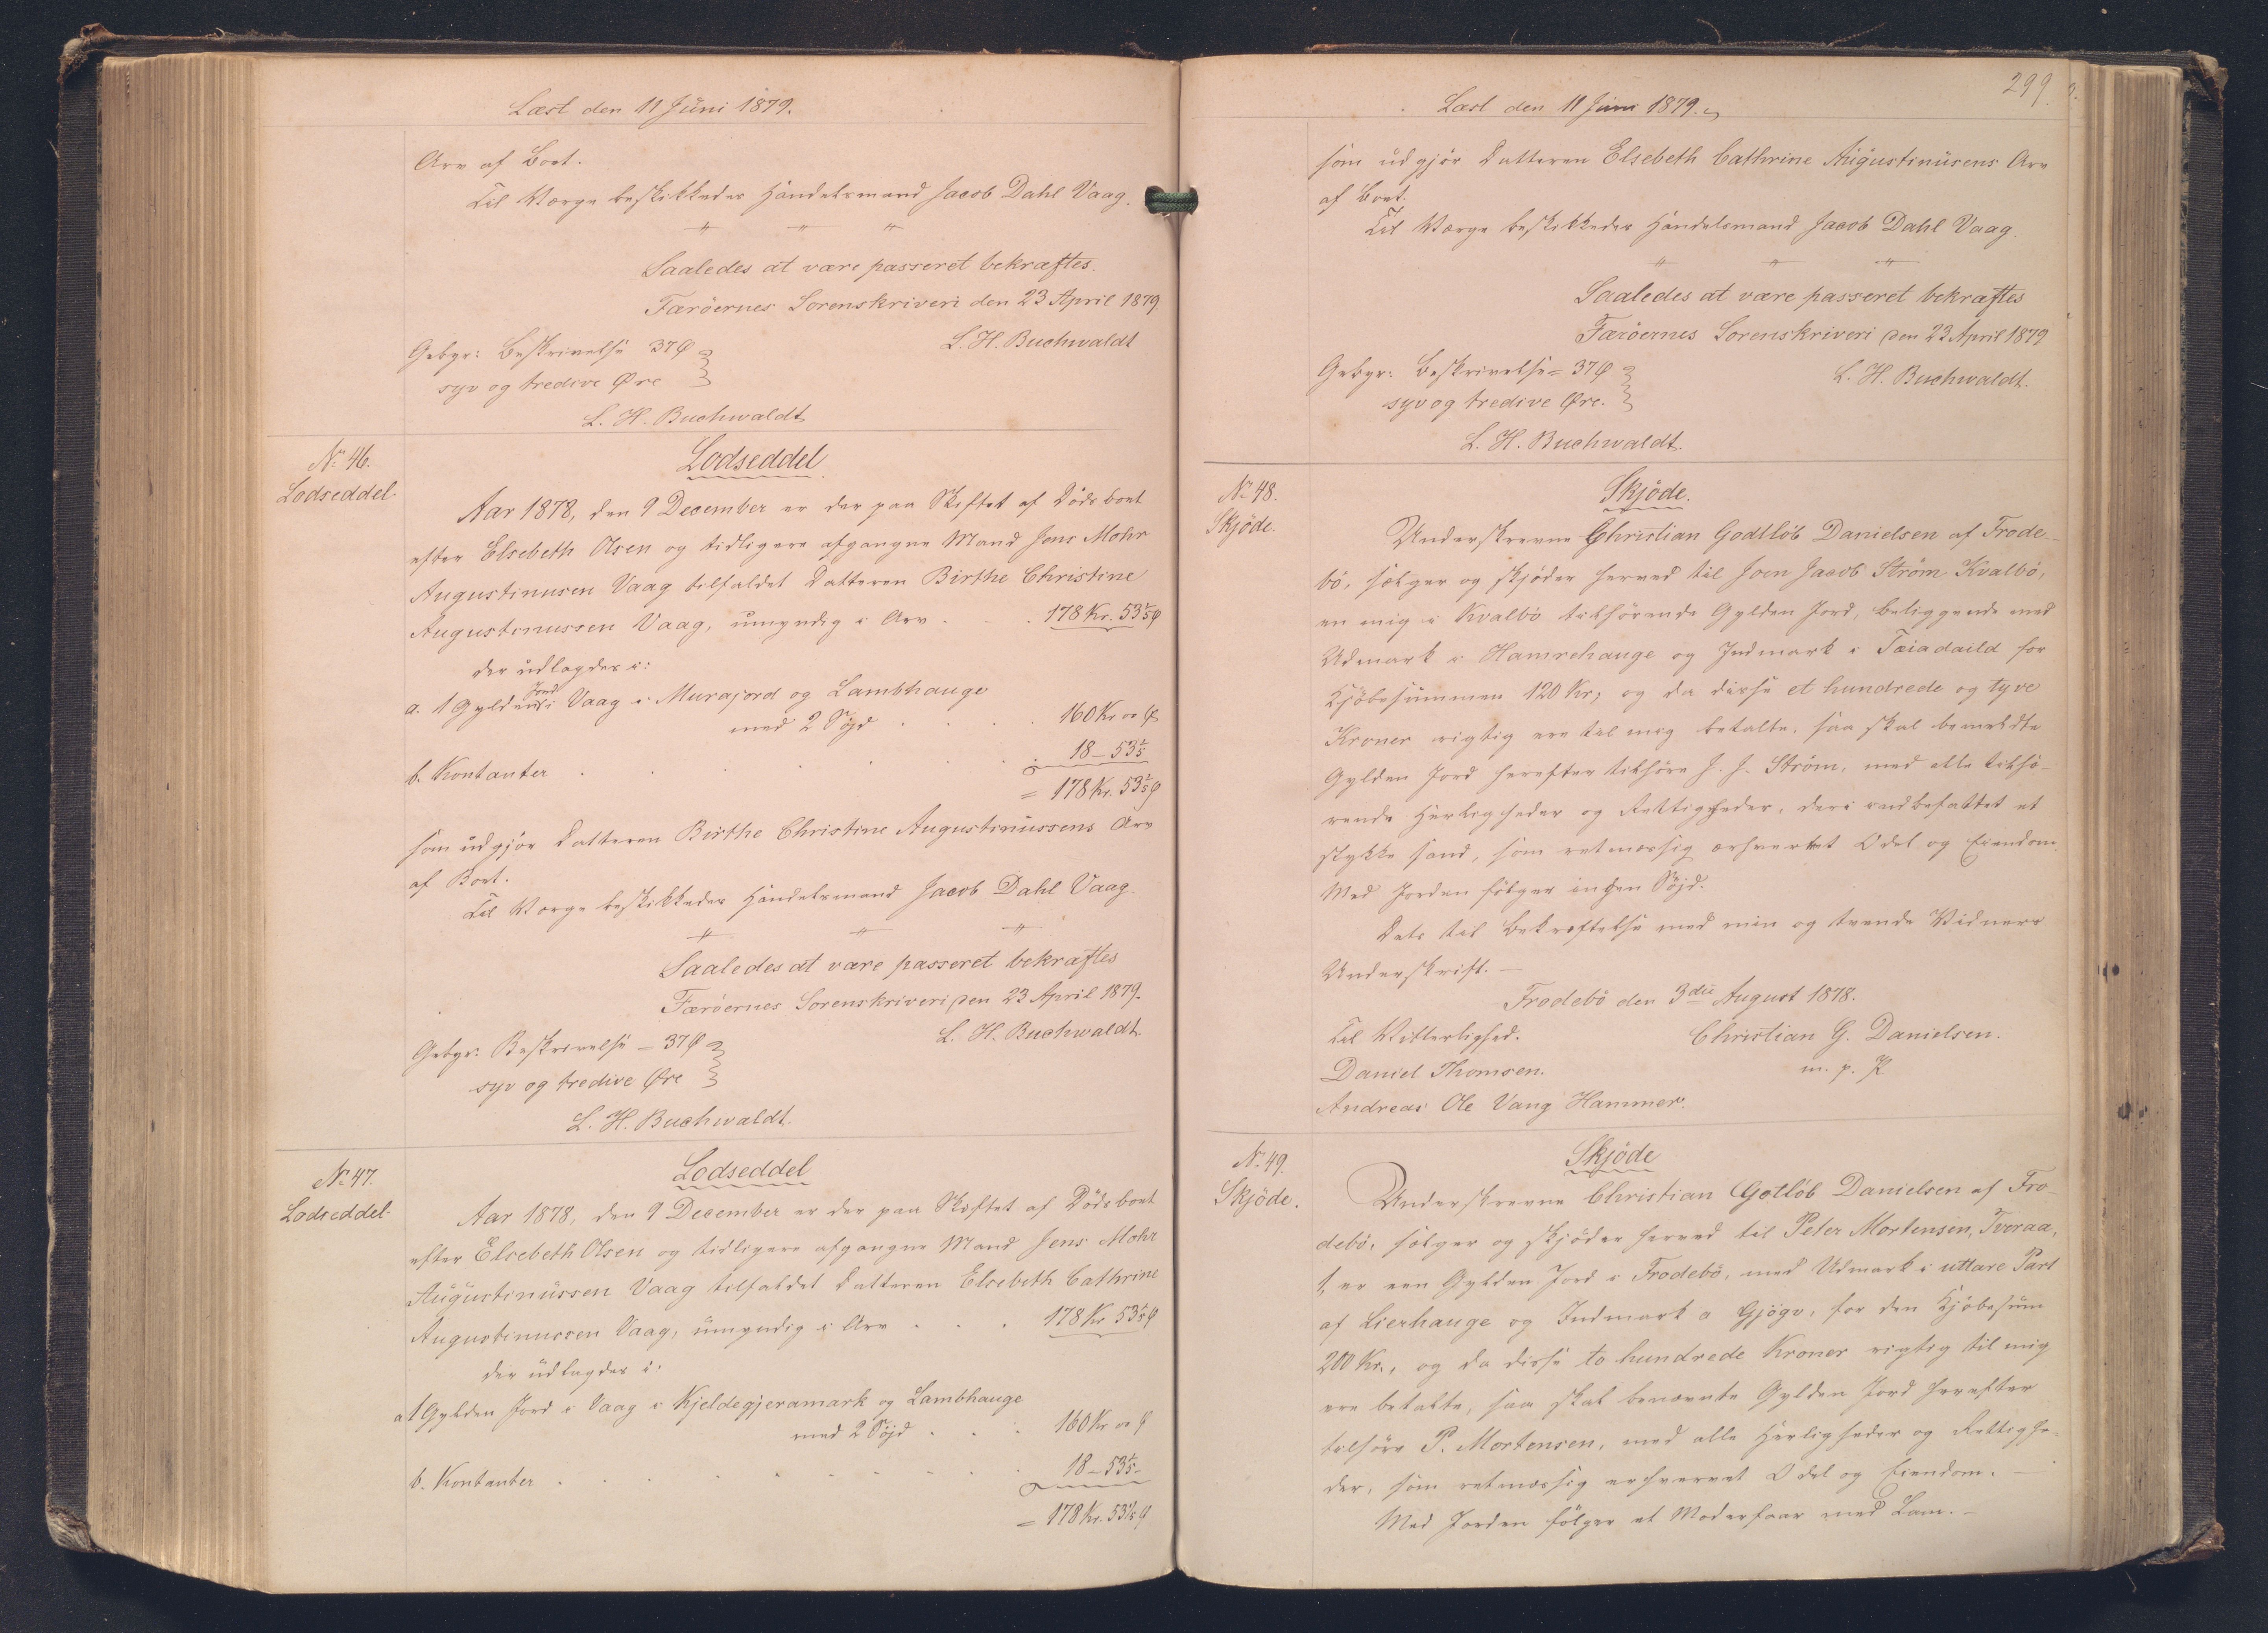 Læst den 11 Juni 1879.
Arv af Boet.
Til Værge beskikkedes Handelsmand Jacob Dahl Vaag.
Saaledes at være passeret bekræftes.
Færöernes Sorenskriveri den 23 April 1879
L. H. Buchwaldt
Gebyr: Beskrivelse 37 Ø
syv og tredive Øre
L. H. Buchwaldt
No 46.
Lodseddel.
Lodseddel
Aar 1878, den 9 December er der paa Skiftet af Dödsboet
efter Elsebeth Olsen og tidligere afgangne Mand Jens Mohr
Augustinusen Vaag tilfaldet Datteren Birthe Christine
Augustinussen Vaag, umyndig i Arv . . . 178 Kr. 53 1/5 Ø
der udlagdes i:
a. 1 Gylden Jord i Vaag i Murajord og Lambhauge
med 2 Söjd . . . . 160 Kr oo Ø
b. Kontanter . . . . . . . 18 – 53 1/5
= 178 Kr. 53 1/5 Ø
som udgjör Datteren Birthe Christine Augustinussens Arv
af Boet.
Til Værge beskikkedes Handelsmand Jacob Dahl Vaag.
Saaledes at være passeret bekræftes
Færöernes Sorenskriveri den 23 April 1879.
L. H. Buchwaldt.
Gebyr: Beskrivelse – 37 Ø
syv og tredive Øre
L. H. Buchwaldt.
No 47.
Lodseddel.
Lodseddel
Aar 1878, den 9 December er der paa Skiftet af Dödsboet
efter Elsebeth Olsen og tidligere afgangne Mand Jens Mohr
Augustinussen Vaag tilfaldet Datteren Elsebeth Cathrine
Augustinussen Vaag, umyndig i Arv . . . 178 Kr. 53 1/5 Ø
der udlagdes i:
a 1 Gylden Jord i Vaag i Kjeldegjeramark og Lambhauge
med 2 Söjd . . . 160 Kr oo Ø
b. Kontanter . . . . . . . . . 18 – 53 1/5 –
= 178 Kr. 53 1/5 Ø
299
Læst den 11 Juni 1879.
som udgjör Datteren Elsebeth Cathrine Augustinusens Arv
af Boet.
Til Værge beskikkedes Handelsmand Jacob Dahl Vaag.
Saaledes at være passeret bekræftes
Færöernes Sorenskriveri den 23 April 1879
L. H. Buchwaldt.
Gebyr: Beskrivelse = 37 Ø
syv og tredive Øre.
L. H. Buchwaldt.
No 48.
Skjöde.
Skjöde.
Underskrevne Christian Godtlöb Danielsen af Frode-
bö, sælger og skjöder herved til Joen Jacob Ström Kvalbö,
en mig i Kvalbö tilhörende Gylden Jord, beliggende med
Udmark i Hamrehauge og Indmark i Tæiadaild for
Kjöbesummen 120 Kr; og da disse et hundrede og tyve
Kroner rigtig ere til mig betalte, saa skal bemeldte
Gylden Jord herefter tilhöre J. J. Ström, med alle tilhö-
rende Herligheder og Rettigheder, deri indbefattet et
stykke sand, som retmæssig erhvervet Odel og Eiendom.
Med Jorden fölger ingen Söjd.
Dets til Bekræftelse med min og tvende Vidners
Underskrift. –
Frodebö den 3die August 1878.
Christian G. Danielsen.
m. p. P
Til Vitterlighed.
Daniel Thomsen.
Andreas Ole Vang Hammer.
No 49.
Skjöde.
Skjöde
Underskrevne Christian Gotlöb Danielsen af Fro-
debö, sælger og skjöder herved til Peter Mortensen, Tveraa,
1, er een Gylden Jord i Frodebö, med Udmark i uttare Part
af Lierhauge og Indmark a Gjögv, for den Kjöbesum
200 Kr., og da disse to hundrede Kroner rigtig til mig
ere betalte, saa skal benævnte Gylden Jord herefter
tilhöre P. Mortensen, med alle Herligheder og Rettighe-
der, som retmæssig erhvervet Odel og Eiendom. –
Med Jorden fölger et Moderfaar med Lam. –